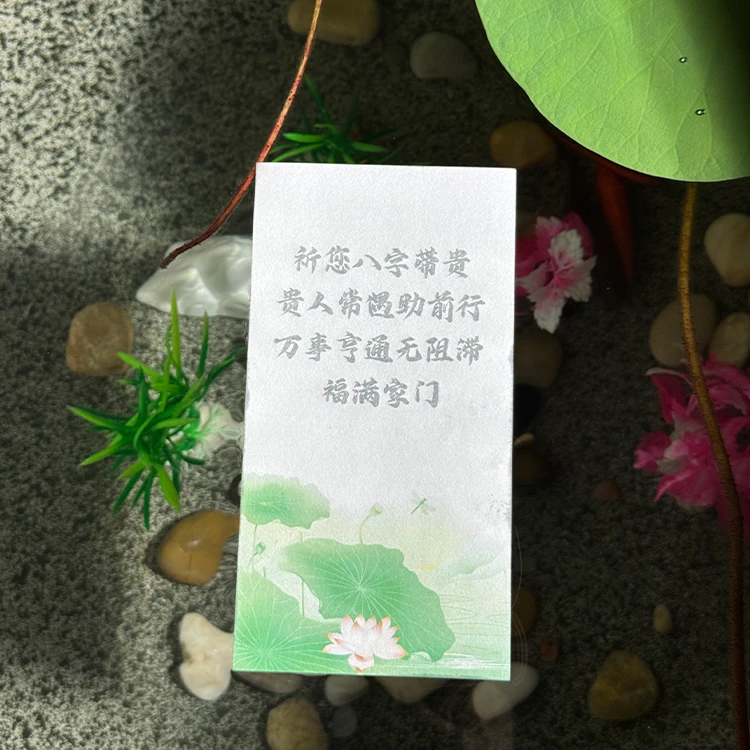 祈您八字带贵
贵人常遇助前行
万事亨通无阻滞
福满家门